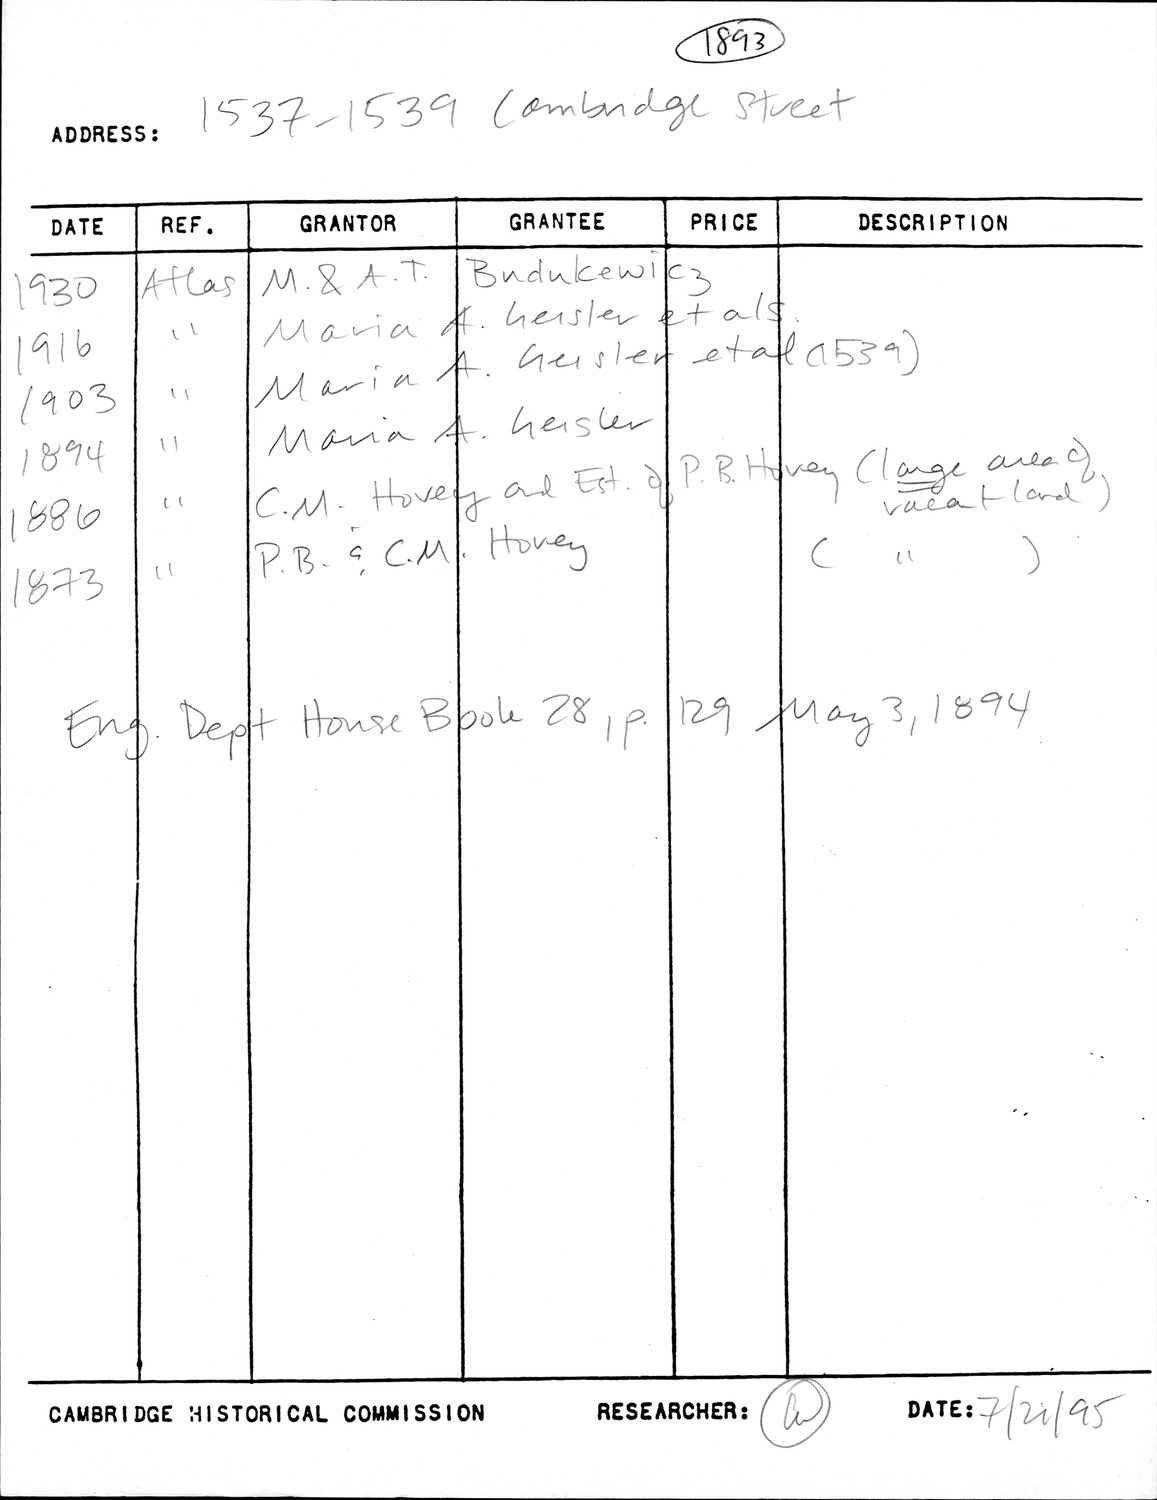 1893
ADDRESS: 1537-1539 Cambridge Street
DATE REF. GRANTOR GRANTEE PRICE DESCRIPTION
1930 Atlas M. & A.T. Budukewicz
1916 " Maria A. Geisler et als.
1903 " Maria A. Geisler et al (1539)
1894 " Maria A. Geisler
1886 " C.M. Hovey and Est. of P.B. Hovey (large area of
vacant land)
1873 " P.B. & C.M. Hovey ( " )
Eng. Dept House Book 28, p. 129 May 3, 1894
CAMBRIDGE HISTORICAL COMMISSION RESEARCHER: DATE: 7/21/95